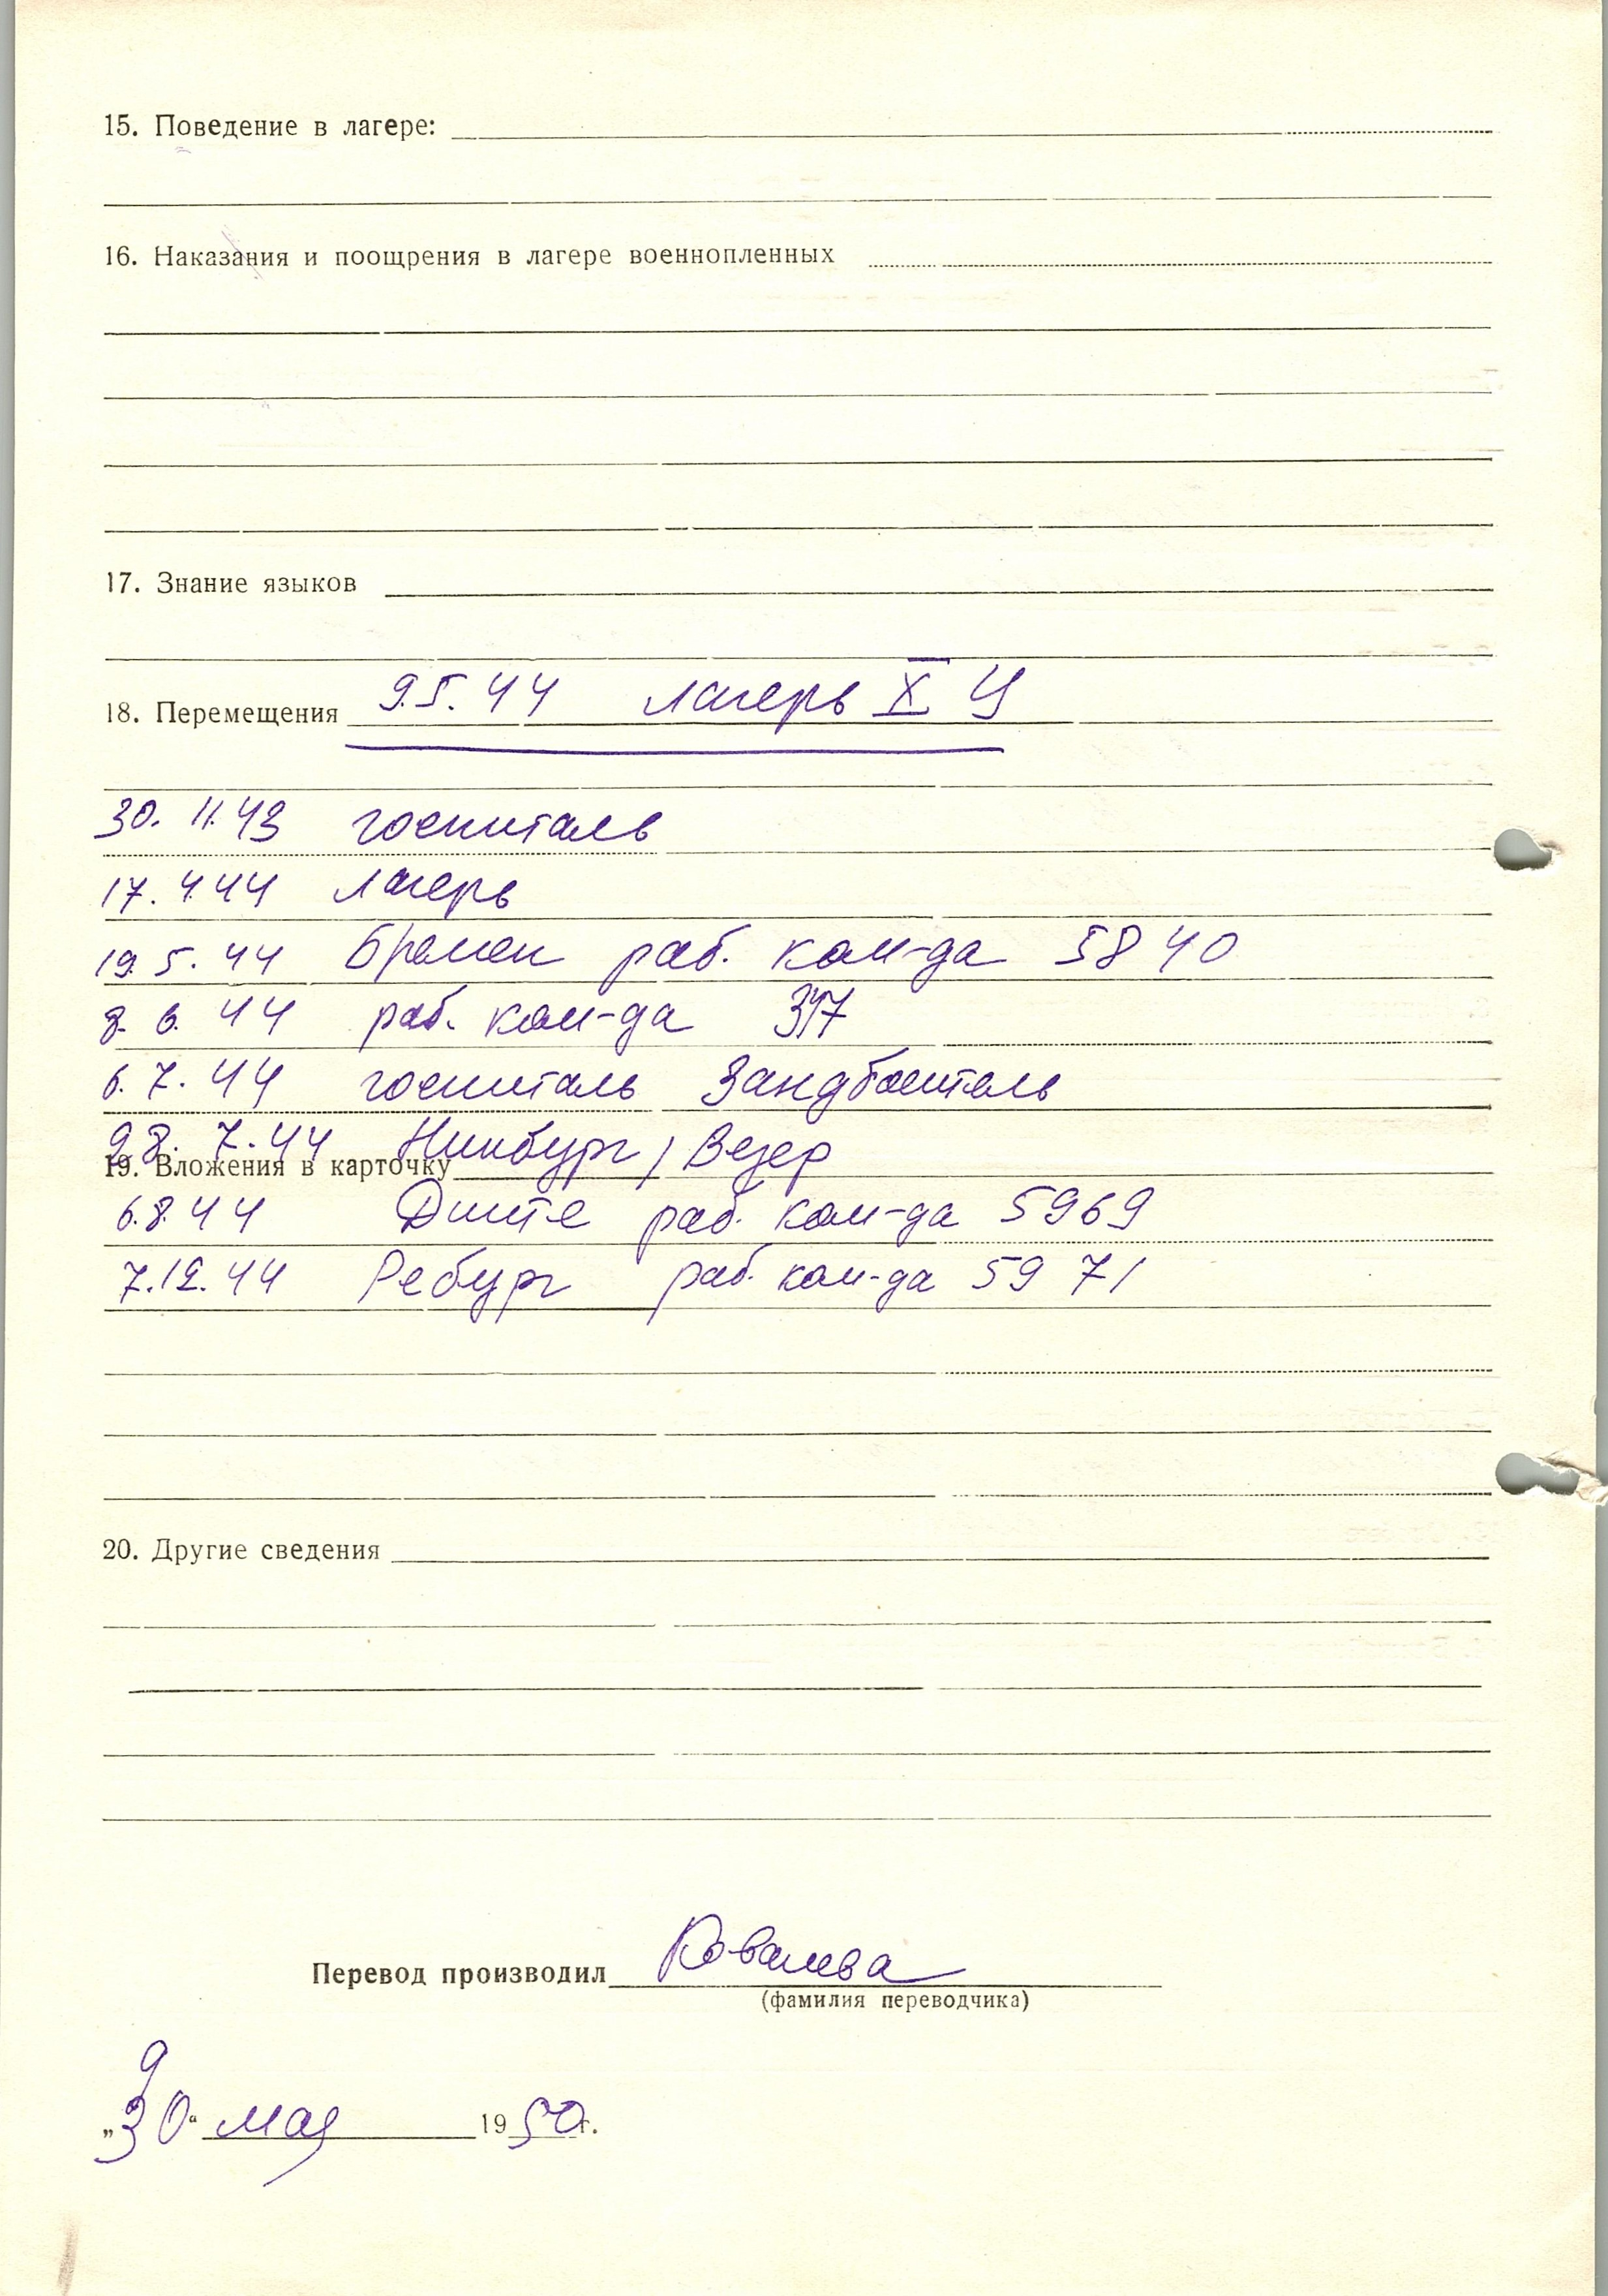 15. Поведение в лагере:
16. Наказания и поощрения в лагере военнопленных
17. Знание языков
18. Перемещения 9.5.44 лагерь X Ц
30. 11.43 госпиталь
17. 4.44 лагерь
19. 5. 44 Бремен раб. ком-да 5840
8. 6. 44 раб. ком-да
6. 7. 44 госпиталь Зандбостель
28. 7. 44 Нинбург / Везер
19. Вложения в карточку
6.8.44 раб. ком-да 5969
7.12.44 Ребург раб. ком-да 5971
20. Другие сведения
Перевод производил Ковалева
(фамилия переводчика)
„30“ мая 1950г.